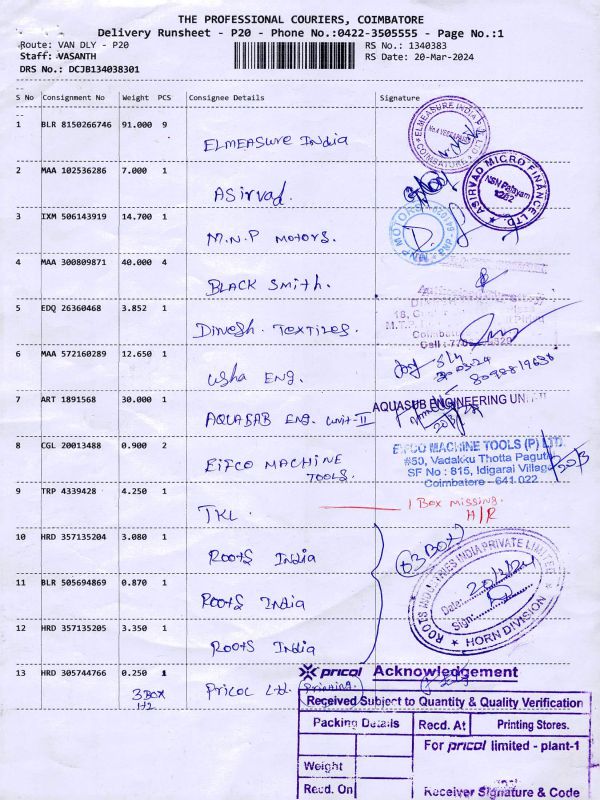 THE PROFESSIONAL COURIERS, COIMBATORE
Delivery Runsheet - P20 - Phone No.:0422-3505555 - Page No.:1
Route: VAN DLY - P20
RS No.: 1340383
Staff: VASANTH
RS Date: 20-Mar-2024
DRS No.: DCJB134038301
S No Consignment No Weight PCS Consignee Details Signature
1 BLR 8150266746 91.000 9 ELMEASURE INDIA
ELMEASURE INDIA P LTD
COIMBATORE
2 MAA 102536286 7.000 1 ASIRVAD.
ASIRVAD MICRO FINANCE LTD.
NSN Palayam
1282
3 IXM 506143919 14.700 1 M.N.P MOTORS.
MNP MOTORS
4 MAA 300809871 40.000 4 BLACK SMITH.
5 EDQ 26360468 3.852 1 DINESH. TEXTILES.
6 MAA 572160289 12.650 1 USHA ENG.
20-03-24
7 ART 1891568 30.000 1 AQUABAB ENG. UNIT-II
AQUASUB ENGINEERING UNIT
20/3
8 CGL 20013488 0.900 2 EIFCO MACHINE TOOLS.
EIFCO MACHINE TOOLS (P) Ltd
#50, Vadakku Thotta Paguthi
SF No : 815, Idigarai Village
Coimbatore - 641 022
20/3
9 TRP 4339428 4.250 1 TKL
1 BOX MISSING.
H/R
10 HRD 357135204 3.080 1 ROOTS INDIA
03 BOX
11 BLR 505694869 0.870 1 ROOTS INDIA
ROOTS INDUSTRIES INDIA PRIVATE LIMITED
Date: 20/3/24
Sign:
HORN DIVISION
12 HRD 357135205 3.350 1 ROOTS INDIA
13 HRD 305744766 0.250 1 PRICOL Ltd. Printing.
3 BOX
1+2
pricol Acknowledgement
Received Subject to Quantity & Quality Verification
Packing Details Recd. At Printing Stores.
For pricol limited - plant-1
Weight
Recd. On Receiver Signature & Code